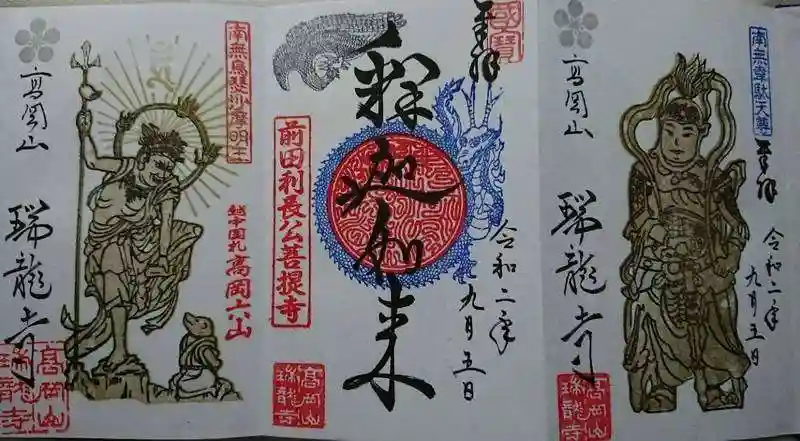 南無烏芻沙摩明王
高岡山
瑞龍寺
高岡六山
高岡山
瑞龍寺
國寶
奉拝
釋迦如来
前田利長公菩提寺
令和二年
九月五日
高岡山
瑞龍寺
南無韋駄天尊
奉拝
高岡山
瑞龍寺
令和二年
九月五日
高岡山
瑞龍寺